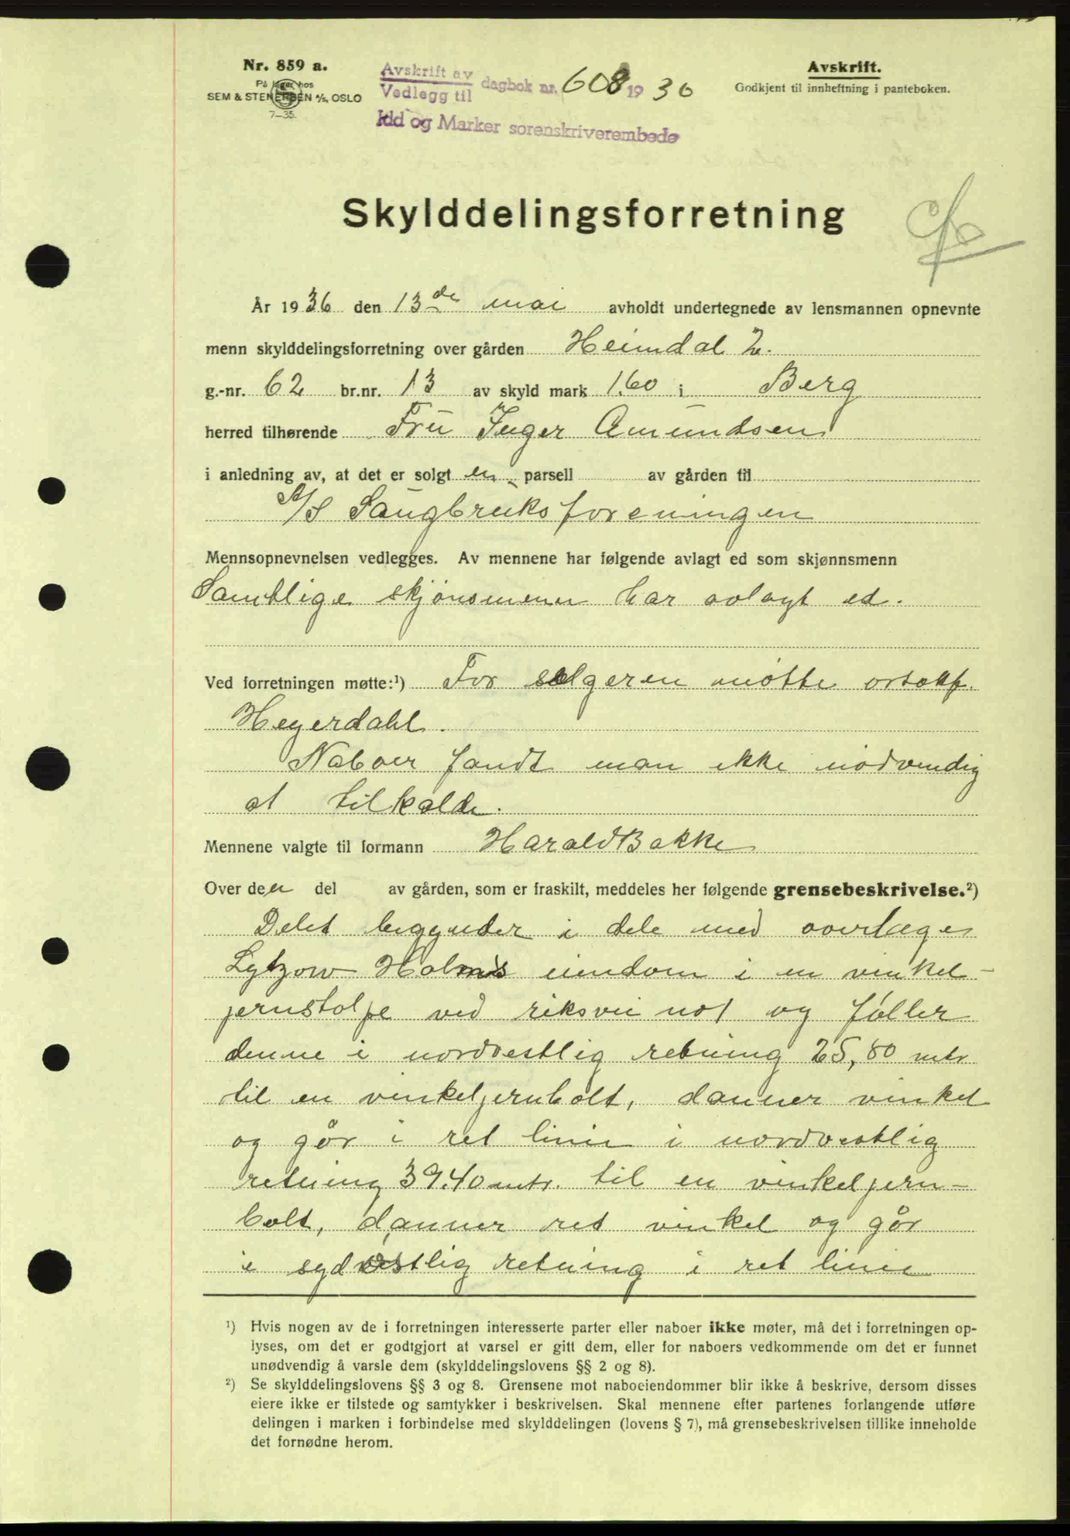 Nr. 859 a.
På lager hos
SEM & STENERSEN A/S, OSLO
7–35.
Avskrift av
Vedlegg til
dagbok nr. 608 1936
Idd og Marker sorenskriverembede
Avskrift.
Godkjent til innheftning i panteboken.
Skylddelingsforretning
År 1936 den 13de mai avholdt undertegnede av lensmannen opnevnte
menn skylddelingsforretning over gården Heimdal 2.
g.-nr. 62 br.nr. 13 av skyld mark 1.60 i Berg
herred tilhørende Fru Inger Amundsen
i anledning av, at det er solgt en parsell av gården til
A/S Saugbruksforeningen
Mennsopnevnelsen vedlegges. Av mennene har følgende avlagt ed som skjønnsmenn
Samtlige skjönsmenn har avlagt ed.
Ved forretningen møtte:¹) For selgeren møtte o.r.sakf.
Heyerdahl.
Naboer fandt man ikke nödvendig
at tilkalde.
Mennene valgte til formann Harald Bakke
Over den del av gården, som er fraskilt, meddeles her følgende grensebeskrivelse.²)
Delet begynder i dele med overlæge
Lytzow Holms eiendom i en vinkel-
jernstolpe ved riksvei no 1 og föller
denne i nordvestlig retning 25,80 mtr
til en vinkeljernbolt, danner vinkel
og går i ret linie i nordvestlig
retning 39.40 mtr. til en vinkeljern-
bolt, danner ret vinkel og går
i sydvestlig retning i ret linie
¹) Hvis nogen av de i forretningen interesserte parter eller naboer ikke møter, må det i forretningen op-
lyses, om det er godtgjort at varsel er gitt dem, eller for naboers vedkommende om det er funnet
unødvendig å varsle dem (skylddelingslovens §§ 2 og 8).
²) Se skylddelingslovens §§ 3 og 8. Grensene mot naboeiendommer blir ikke å beskrive, dersom disses
eiere ikke er tilstede og samtykker i beskrivelsen. Skal mennene efter partenes forlangende utføre
delingen i marken i forbindelse med skylddelingen (lovens § 7), må grensebeskrivelsen tillike inneholde
det fornødne herom.